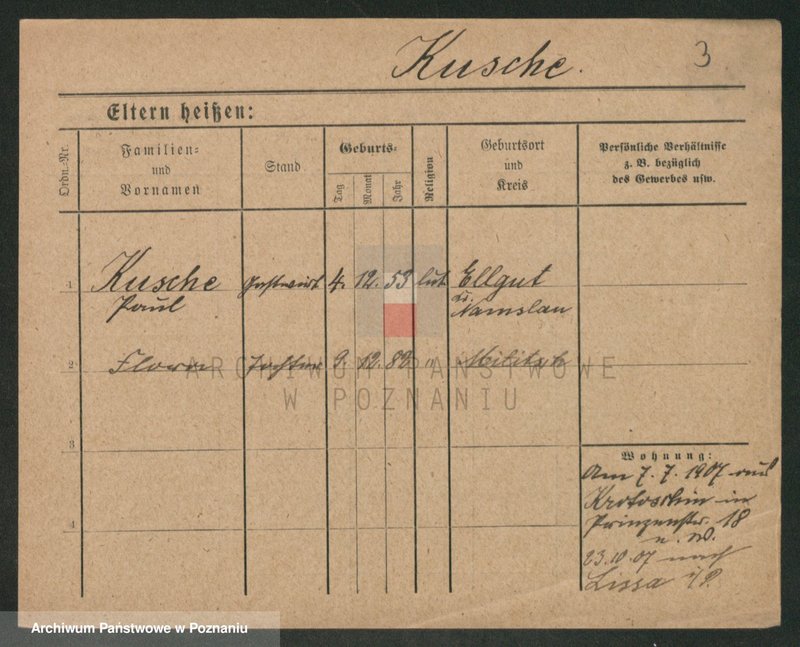 Kusche.
3
Eltern heißen:
Ordn.-Nr.
Familien-
und
Vornamen
Stand
Geburts-
Tag
Monat
Jahr
Religion
Geburtsort
und
Kreis
Persönliche Verhältnisse
z. B. bezüglich
des Gewerbes usw.
1 Kusche Gastwirt 4. 12. 53 lut Ellgut
Paul Kr. Namslau
2 Tochter 9. 12. 82 " Militsch
3
4
Wohnung:
Am 7. 7. 1907 aus
Krotoschin in
Prinzenstr. 18
z. W.
23.10.07 nach
Lissa i/P.
ARCHIWUM PAŃSTWOWE
W POZNANIU
Archiwum Państwowe w Poznaniu